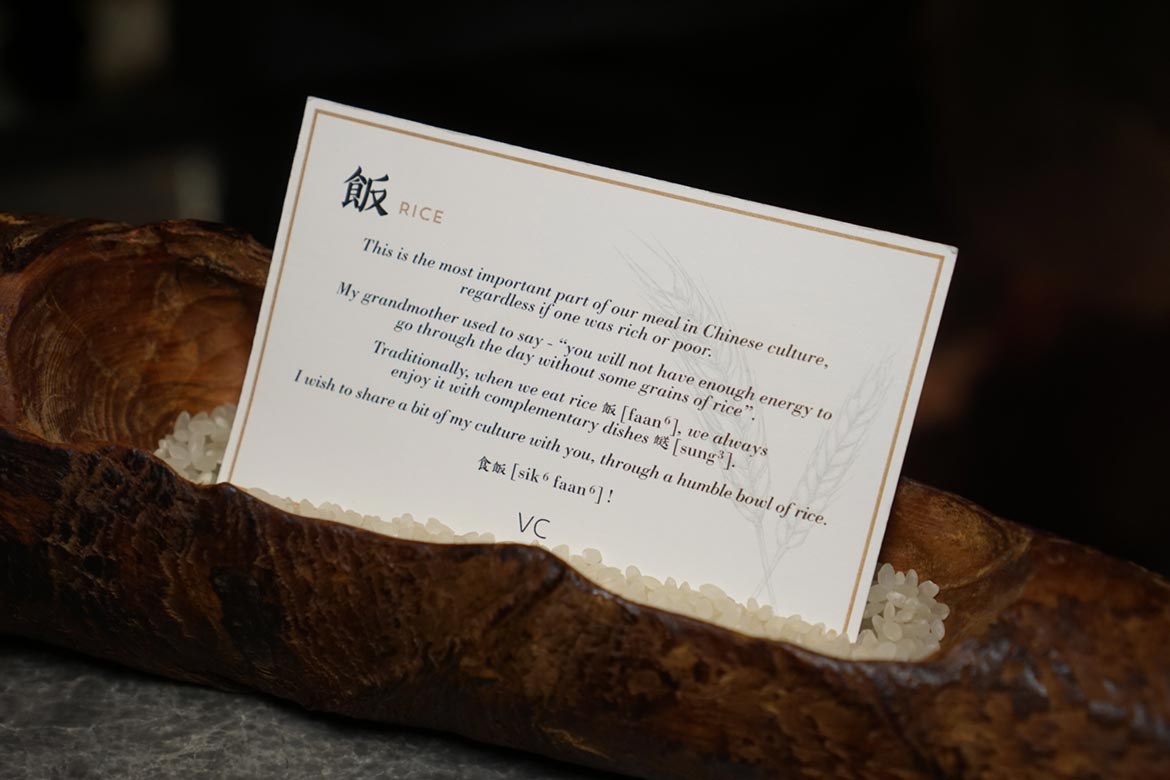 飯 RICE
This is the most important part of our meal in Chinese culture,
regardless if one was rich or poor.
My grandmother used to say - “you will not have enough energy to
go through the day without some grains of rice”.
Traditionally, when we eat rice 飯 [faan⁶], we always
enjoy it with complementary dishes 餸 [sung³].
I wish to share a bit of my culture with you, through a humble bowl of rice.
食飯 [sik⁶ faan⁶] !
VC